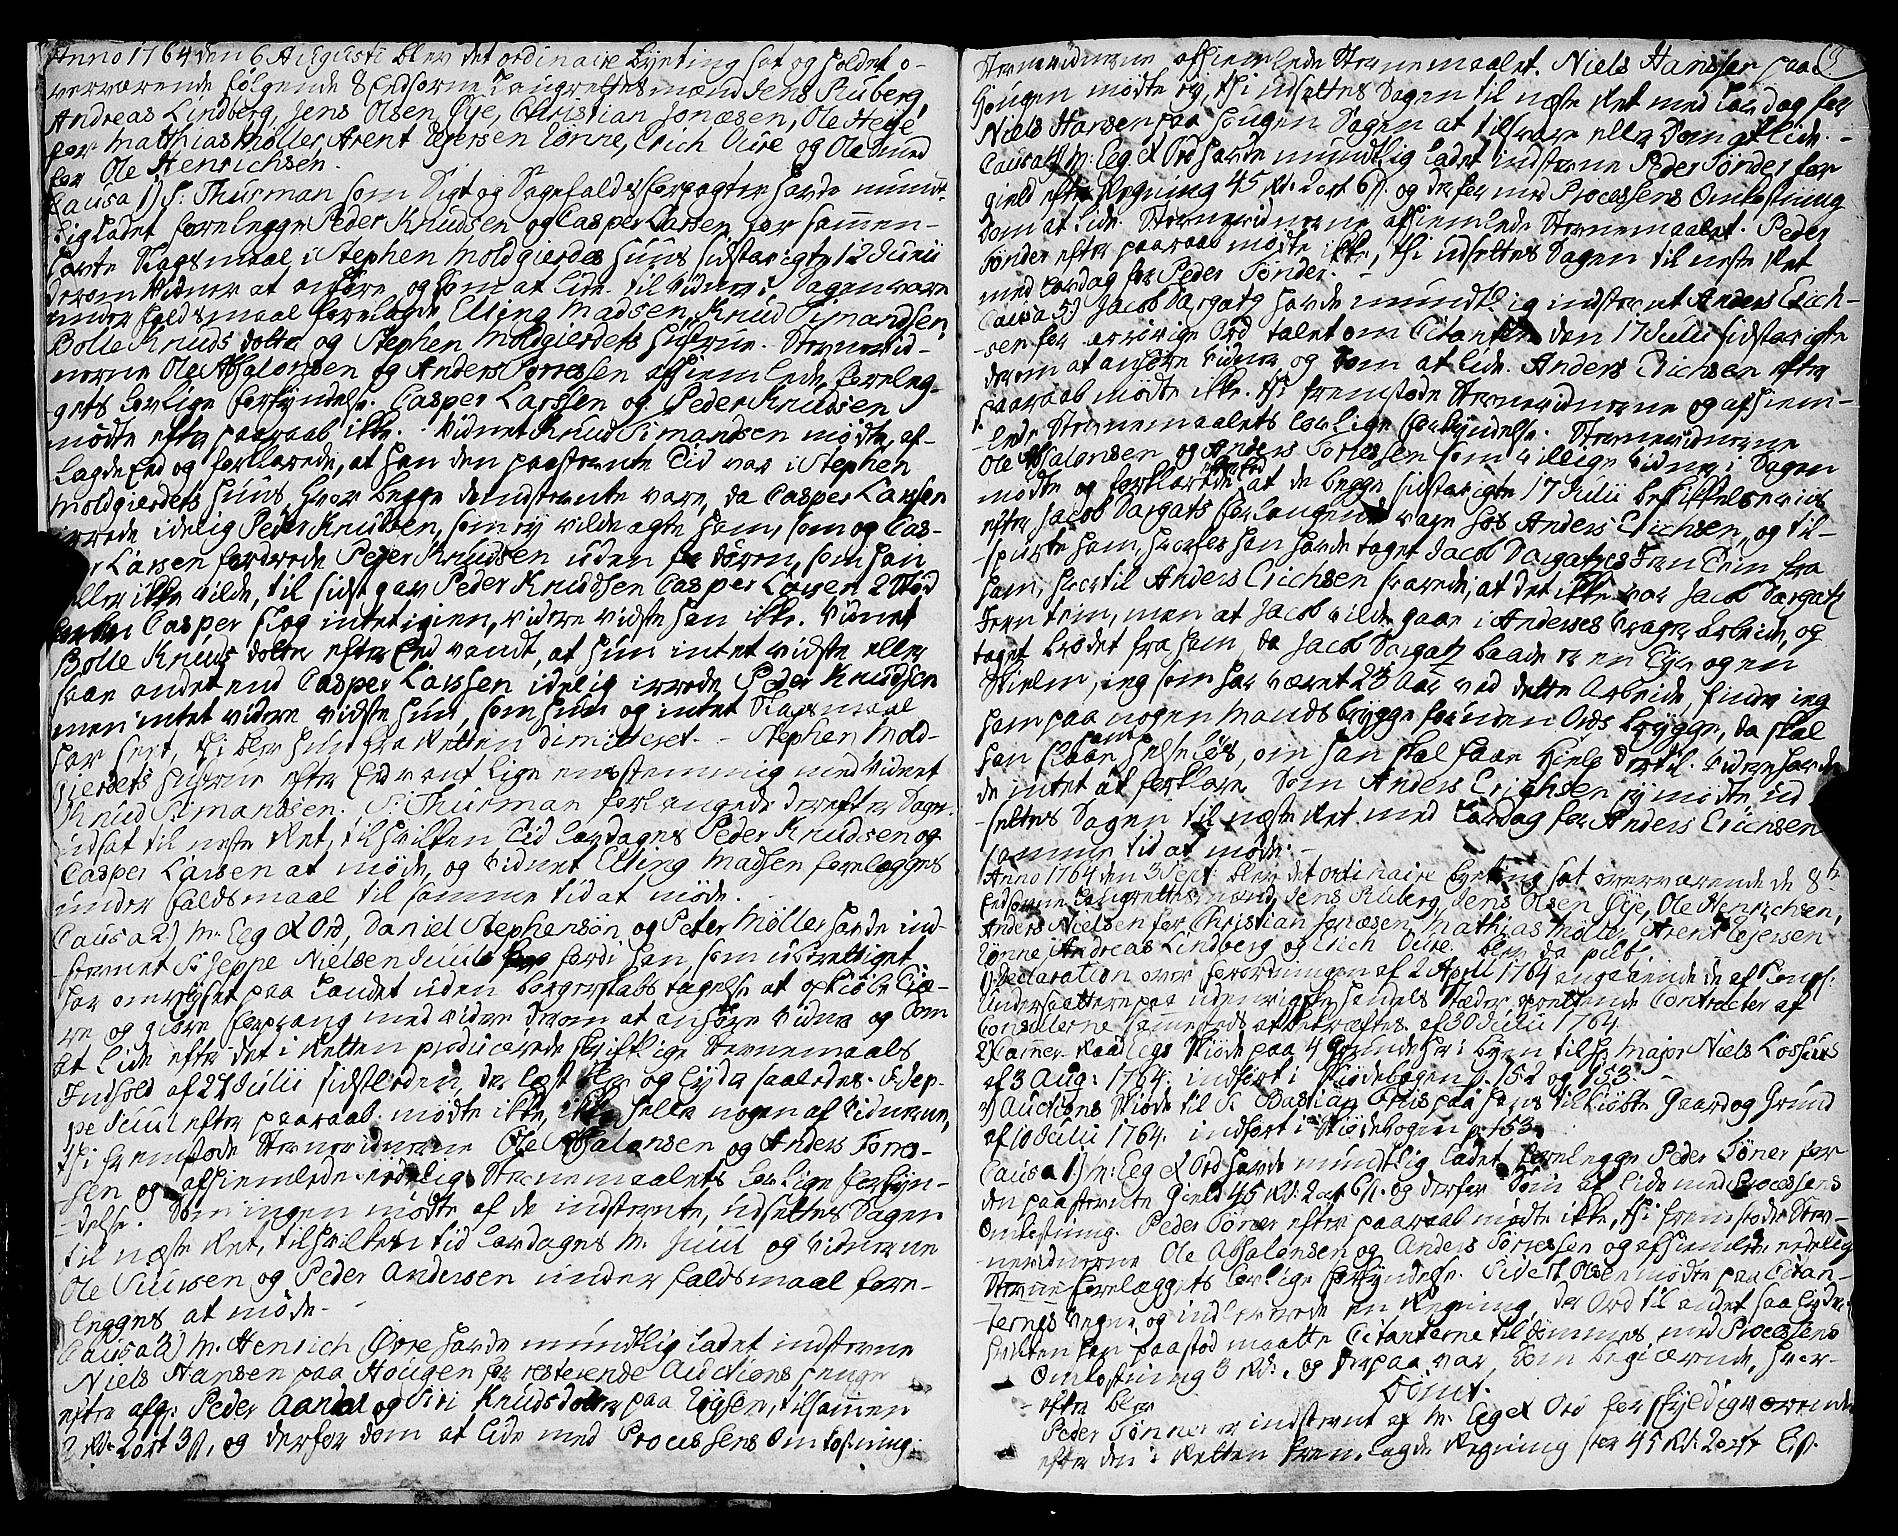 Anno 1764 den 6 Augusti blev det ordinaire Byeting sat og holdet o-
verværende følgende 8 Eedsorne Laugrettesmænd Jens Ruberg,
Andreas Lindberg, Jens Olsen Øye, Christian Jonæsen, Ole Heyé
for Mathias Møller, Arent Ejersen Tønne, Erich Oure og Ole
for Ole Henrichsen.
Causa 1) Sr. Thurman som Sigt og Sagefalds forpagter hafde mundt-
lig ladet forelegge Peder Knudsen og Casper Larsen for sammen-
Slagsmaal i Stephen Moldgierdes Huus sidstavigte 12 Junii
derom Vidner at anhøre og Dom at lide. Til Vidner i Sagen vare
under faldsmaal forelagde Elling Madsen, Knud Simandsen,
Bolle Knuds dotter og Stephen Moldgierdets Hustrue. Stevnevid-
nerne Ole Absalonsen og Anders Torresen afhiemlede foreleg-
gets lovlige forkyndelse. Casper Larsen og Peder Knudsen
mødte efter paaraab ikke. Vidnet Knud Simandsen mødte, af-
lagde Eed og forklarede, at han den paastevnte Tid var i Stephen
Moldgierdets Huus, hvor begge de indstevnte vare, da Casper Larsen
irrede idelig Peder Knudsen, som ey vilde agte ham, som og Cas-
per Larsen fordrede Peder Knudsen uden for døren, som han
eller ikke vilde, til sidst gav Peder Knudsen Casper Larsen 2 Stød
Casper slog intet igien, videre vidste han ikke. Vidnet
Bolle Knuds dotter efter Eed vandt, at hun intet vidste eller
saae andet end Casper Larsen idelig irrede Peder Knudsen
men intet videre vidste hun, som hun og intet Slagsmaal
har seet, thi blev hun fra Retten dimitteret. - Stephen Mold-
gierdets Hustrue efter Eed vant lige eensstemmig med Vidnet
Knud Simandsen. Sr. Thurman forlangede derefter Sagen
udsat til neste Ret, til hvilken Tid lovdages Peder Knudsen og
Casper Larsen at møde, og Vidnet Elling Madsen forelegges
under faldsmaal til samme tid at møde.
Causa 2) Mr. Eeg & Ord, Daniel Stephensøn og Peter Møller hafde ind-
stevnet Sr. Jeppe Nielsen Juul fordi han, som uberettiget
har omreyset paa Landet uden borgerskabs tagelse at opkiøbe Tiæ-
re og giøre forprang med videre derom at anhøre Vidner og Dom
at lide efter det i Retten producerede skriftlige Stevnemaals
Indhold af 27 Julii sidstleden, der læst blev og lyder saaledes. Sr. Jep-
pe Juul efter paaraab mødte ikke, ikke heller nogen af Vidnerne,
thi fremstode Stevnevidnerne Ole Absalonsen og Anders Torres-
sen og afhiemlede eedelig Stevnemaalets lovlige forkyn-
delse. Som ingen mødte af de indstevnte, udsættes Sagen
til næste Ret, til hvilken tid lovdages Mr. Juul og Vidnerne
Ole Siursen og Peder Andersen under faldsmaal fore-
legges at møde.
Causa 3) Mr. Henrich Øvre hafde mundtlig ladet indstevne
Niels Hansen paa Hougen for resterende Auctions penger
efter afg: Peder Aandal og Siri Knudsdotter paa, tilsammen
2 Rdr 2 ort 3 s, og derfor dom at lide med Processens Omkostning.
Stevnevidnerne afhiemlede Stevnemaalet. Niels Hansen paa
Hougen mødte ey, thi udsettes Sagen til neste Ret med Lovdag for
Niels Hansen paa Hougen Sagen at tilsvare eller Dom at lide. -
Causa 4) Mr. Eeg & Ord hafde mundtlig ladet indstevne Peder Tønder for
gield efter Regning 45 Rd. 2 ort 6 s. og derfor med Processens Omkostning
Dom at lide. Stevnevidnerne afhiemlede Stevnemaalet. Peder
Tønder efter paaraab mødte ikke, thi udsettes Sagen til neste Ret
med Lovdag for Peder Tønder.
Causa 5) Jacob Dargatz hafde mundtlig indstevnet Anders Erich-
sen for ærrørige Ord talet om Citanten den 17 Julii sidstavigte
derom at anhøre Vidner og Dom at lide. Anders Erichsen efter
paaraab mødte ikke. thi fremstode Stevnevidnerne og afhiem-
lede Stevnemaalets lovlige forkyndelse. Stevnevidnerne
Ole Absalonsen og Anders Torressen som villige Vidner i Sagen
mødte og forklarede at de begge sidstavigte 17 Julii beskikkelsesviis
efter Jacob Dargats forlangende vare hos Anders Erichsen, og til-
spurte ham, hvorfor han hafde taget Jacob Dargatzes fra
ham, hvortil Anders Erichsen svarede, at det ikke var Jacob Dargatz
men at Jacob vilde gaae i Anderses Arbeide, og
taget brødet fra ham, da Jacob Dargatz baade er en Tyv og en
Skielm, ieg som har været 24 Aar ved dette Arbeide, finder ieg
ham paa nogen Mands brygge foruden Ords brygge, da skal
han slaae ham helseløs, om han skal faae hielp dertil. Videre hafde
de intet at forklare. Som Anders Erichsen ey mødte ud-
settes Sagen til næste Ret med Lovdag for Anders Erichsen
samme tid at møde. -
Anno 1764 den 3 Sept: blev det ordinaire Byeting sat overværende de 8te
Eedsorne Laugrettesmænd, Jens Ruberg, Jens Olsen Øye, Ole Henrichsen,
Anders Nielsen for Christian Jonæsen, Mathias Møller, Arent Ejersen
Tønne, Andreas Lindberg og Erich Oure. blev da publ:
1) Declaration over forordningen af 2 April 1764 angaaende de af Kongl:
Undersaattere paa udenrigske handels Stæder oprettende Contracter af
Consulerne sammesteds at bekræftes. af 30 Julii 1764.
2) Camer Raad Eegs Skiøde paa 4 Grunde her i byen til Hr. Major Niels Lossius
af 3 Aug: 1764. indført i Skiødebogen p. 152 og 153. -
3) Auctions Skiøde til Sr. Bastian paa hans tilkiøbte Gaard og Grund
af 10 Julii 1764. indført i Skiødebogen p. 153.
Causa 1) Mr. Eeg & Ord hafde mundtlig ladet forelegge Peder Tøner for
den paastevnte Gield 45 Rd: 2 ort 6 s. og derfor Dom at lide med Processens
Omkostning. Peder Tøner efter paaraab mødte ikke, thi fremstode Stev-
nevidnerne Ole Absalonsen og Anders Torressen og afhiemlede eedelig
Stevne forelæggets lovlige forkyndelse. Sivert Olsen mødte paa Citan-
ternes Vegne og indleverede en Regning, der Ord til andet saa lyder:
hvilken han paastod maatte Citanterne tildømmes med Processens
Omkostning 3 Rd., og derpaa var Dom begiærende, hvor-
efter blev
Dømt.
Peder Tønner er indstevnt af Mr. Eeg & Ord for skyldigværende
efter den i Retten fremlagde Regning stor 45 Rd: 2 ort 6 s.